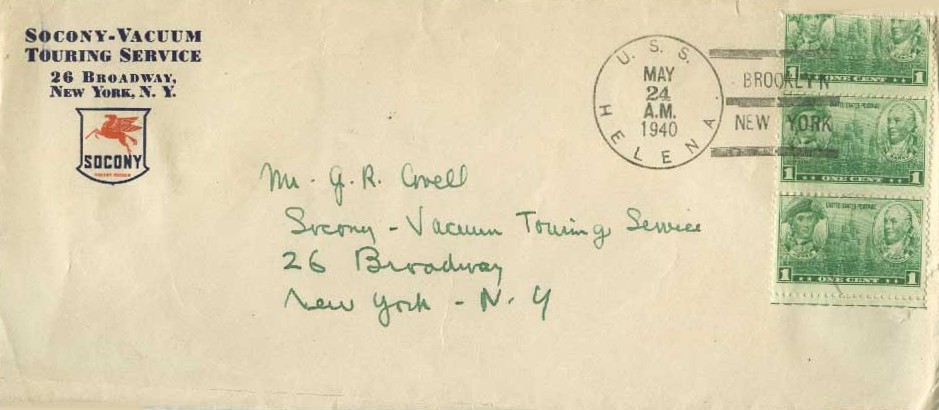 SOCONY-VACUUM
TOURING SERVICE
26 BROADWAY,
NEW YORK, N. Y.
SOCONY
U. S. S. HELENA
MAY
24
A.M.
1940
BROOKLYN
NEW YORK
1 ONE CENT 1
UNITED STATES POSTAGE
1 ONE CENT 1
UNITED STATES POSTAGE
1 ONE CENT 1
Mr. G. R. Covell
Socony - Vacuum Touring Service
26 Broadway
New York - N. Y